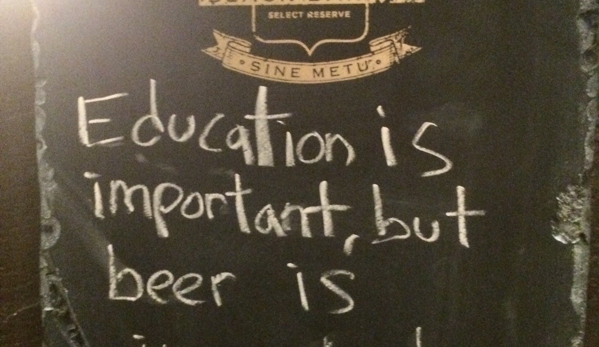 SELECT RESERVE
SINE METU
Education is
important, but
beer is